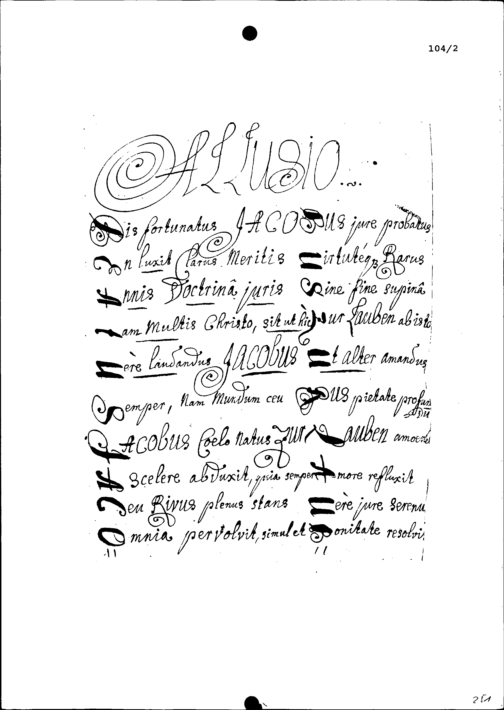 104/2
ALLUSIO...
Bis fortunatus JACOBUS jure probatus
In luxit Clarus Meritis Virtuteq3 Rarus
Annis Doctrinâ juris Sine fine supinâ
tam Multis Christo, sit ut hic Zur Lauben ab isto
Vère laudandus JACOBUS Ut alter amandus
Semper, Nam Mundum ceu PIUS pietate
JACOBUS Coelo natus Zur Lauben
A Scelere abduxit, quia semper Amore refluxit
Ceu Rivus plenus stans Vère jure Serenu
Omnia pervolvit, simul et Bonitate resolvi